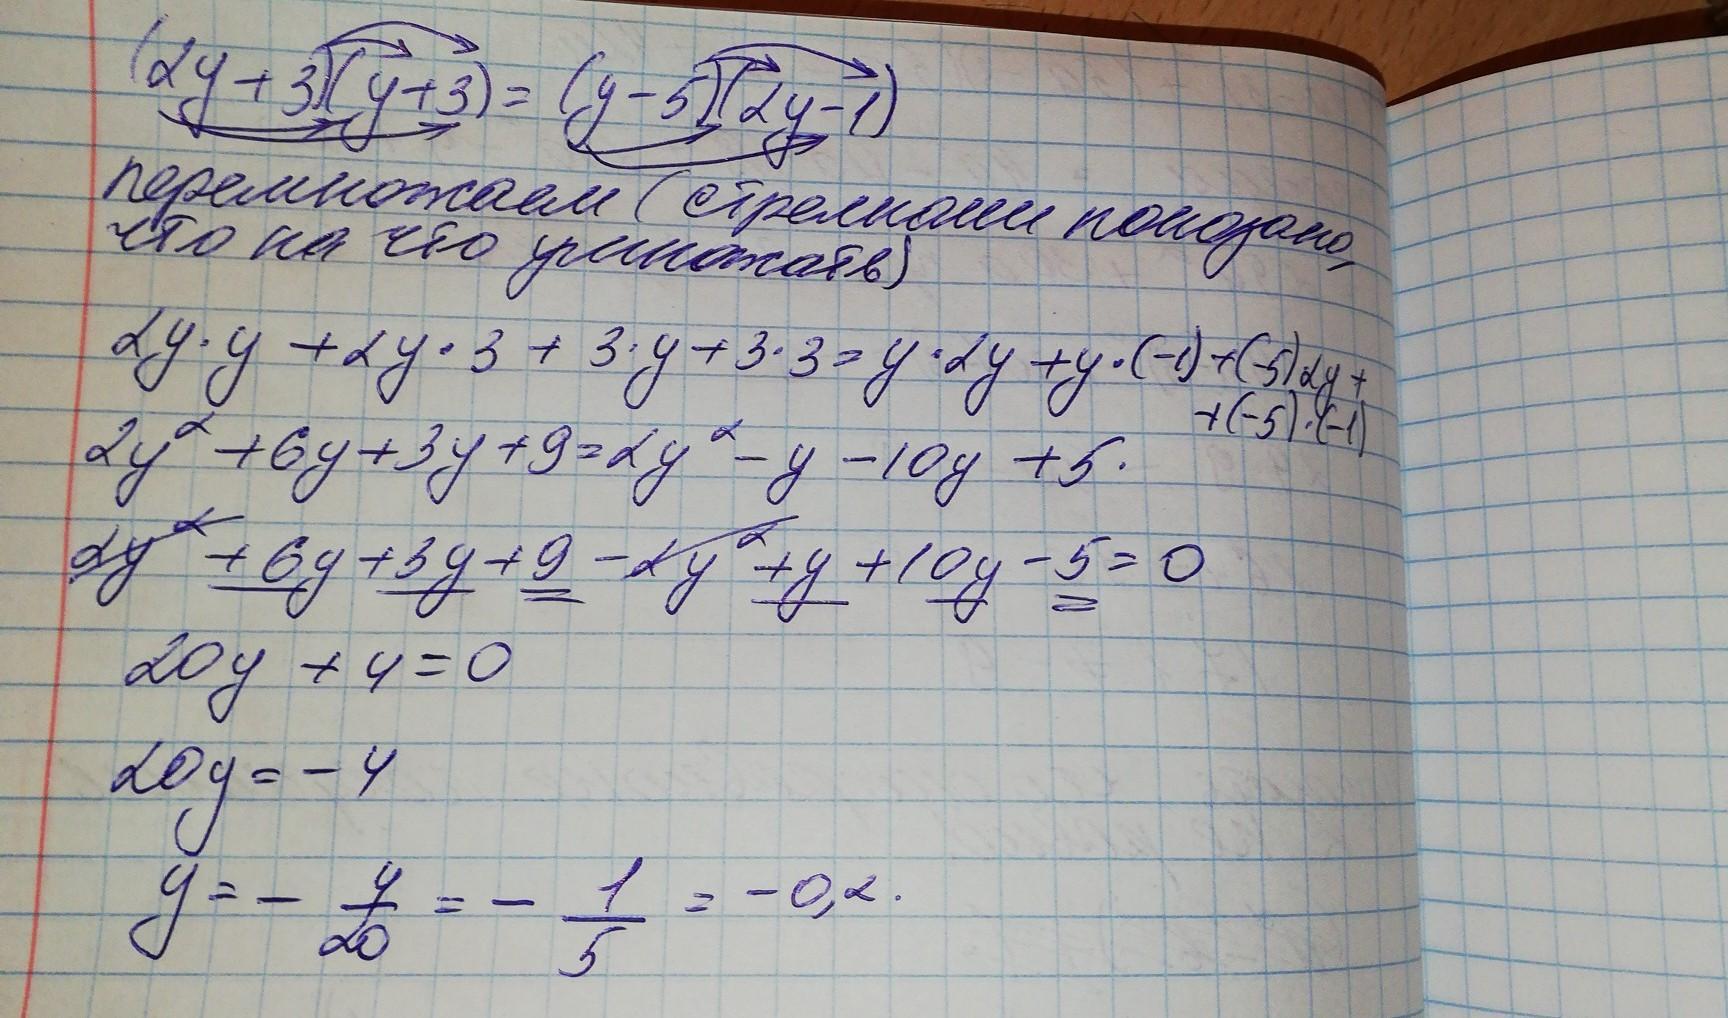 (2y+3)(y+3)=(y-5)(2y-1)
перемножаем (стрелками показано,
что на что умножать)
2y·y+2y·3+3·y+3·3=y·2y+y·(-1)+(-5)2y+
+(-5)·(-1)
2y²+6y+3y+9=2y²-y-10y+5.
2y²+6y+3y+9-2y²+y+10y-5=0
20y+4=0
20y=-4
y=-4/20=-1/5=-0,2.